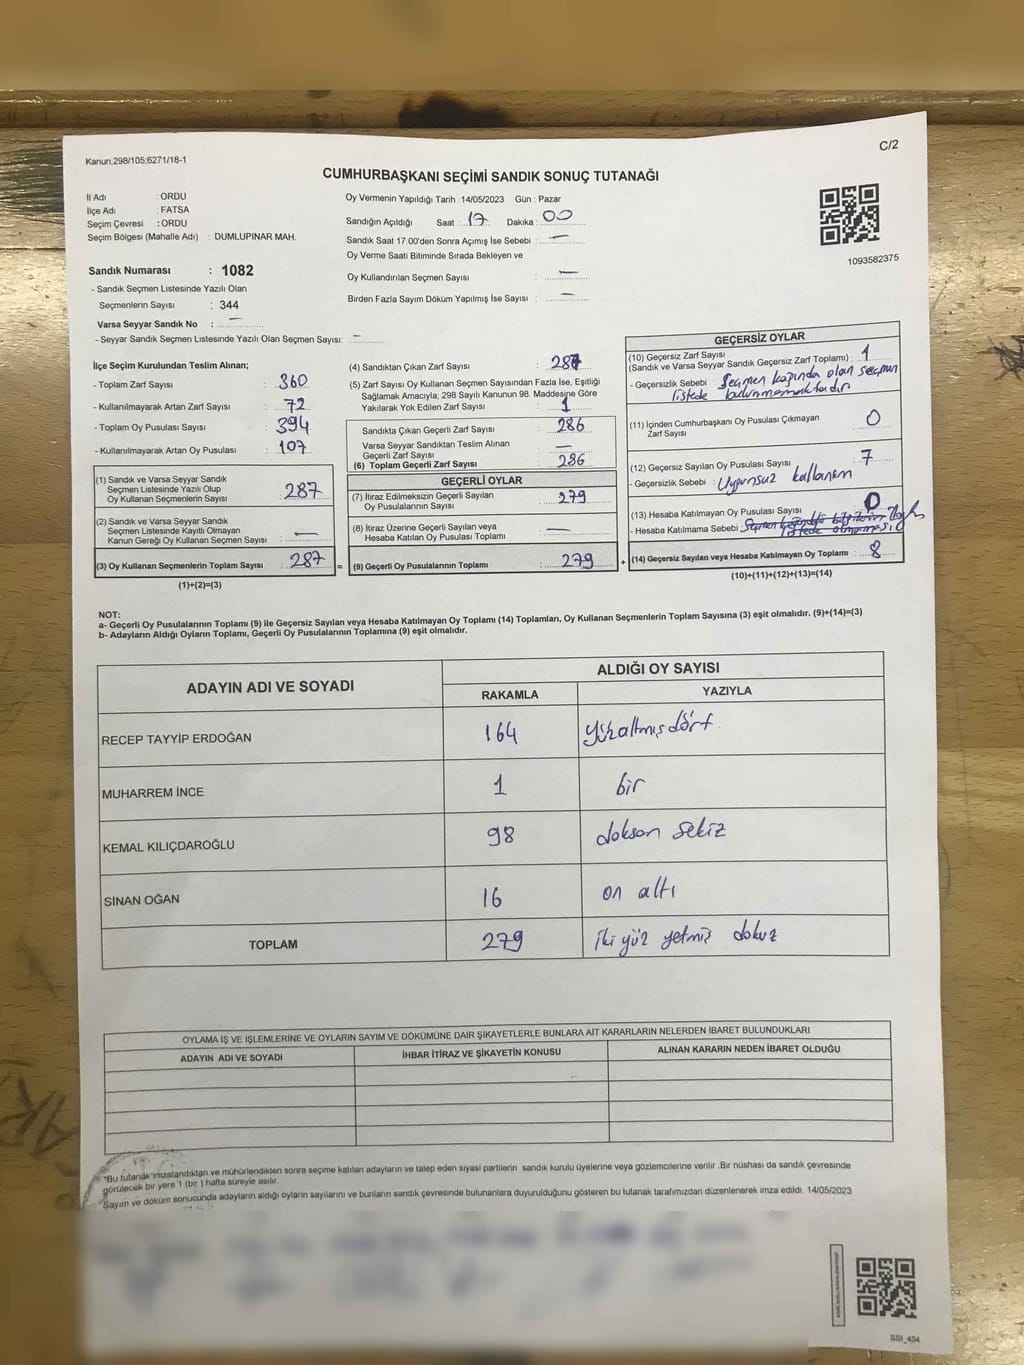 Kanun;298/105;6271/18-1
C/2
CUMHURBAŞKANI SEÇİMİ SANDIK SONUÇ TUTANAĞI
İl Adı : ORDU
İlçe Adı : FATSA
Seçim Çevresi : ORDU
Seçim Bölgesi (Mahalle Adı) : DUMLUPINAR MAH.
Sandık Numarası : 1082
- Sandık Seçmen Listesinde Yazılı Olan
Seçmenlerin Sayısı : 344
Varsa Seyyar Sandık No : —
- Seyyar Sandık Seçmen Listesinde Yazılı Olan Seçmen Sayısı: —
Oy Vermenin Yapıldığı Tarih : 14/05/2023 Gün : Pazar
Sandığın Açıldığı Saat : 17 Dakika : 00
Sandık Saat 17.00'den Sonra Açımış İse Sebebi : —
Oy Verme Saati Bitiminde Sırada Bekleyen ve
Oy Kullandırılan Seçmen Sayısı : —
Birden Fazla Sayım Döküm Yapılmış İse Sayısı : —
1093582375
İlçe Seçim Kurulundan Teslim Alınan;
- Toplam Zarf Sayısı : 360
- Kullanılmayarak Artan Zarf Sayısı : 72
- Toplam Oy Pusulası Sayısı : 394
- Kullanılmayarak Artan Oy Pusulası : 107
(1) Sandık ve Varsa Seyyar Sandık
Seçmen Listesinde Yazılı Olup
Oy Kullanan Seçmenlerin Sayısı : 287
(2) Sandık ve Varsa Seyyar Sandık
Seçmen Listesinde Kayıtlı Olmayan
Kanun Gereği Oy Kullanan Seçmen Sayısı : —
(3) Oy Kullanan Seçmenlerin Toplam Sayısı : 287 =
(1)+(2)=(3)
(4) Sandıktan Çıkan Zarf Sayısı : 287
(5) Zarf Sayısı Oy Kullanan Seçmen Sayısından Fazla İse, Eşitliği
Sağlamak Amacıyla, 298 Sayılı Kanunun 98. Maddesine Göre
Yakılarak Yok Edilen Zarf Sayısı : 1
Sandıkta Çıkan Geçerli Zarf Sayısı : 286
Varsa Seyyar Sandıktan Teslim Alınan
Geçerli Zarf Sayısı : —
(6) Toplam Geçerli Zarf Sayısı : 286
GEÇERLİ OYLAR
(7) İtiraz Edilmeksizin Geçerli Sayılan
Oy Pusulalarının Sayısı : 279
(8) İtiraz Üzerine Geçerli Sayılan veya
Hesaba Katılan Oy Pusulası Toplamı : —
(9) Geçerli Oy Pusulalarının Toplamı : 279 +
GEÇERSİZ OYLAR
(10) Geçersiz Zarf Sayısı
(Sandık ve Varsa Seyyar Sandık Geçersiz Zarf Toplamı) : 1
- Geçersizlik Sebebi : Seçmen kağında olan seçmen
listede bulunmamaktadır
(11) İçinden Cumhurbaşkanı Oy Pusulası Çıkmayan
Zarf Sayısı : 0
(12) Geçersiz Sayılan Oy Pusulası Sayısı : 7
- Geçersizlik Sebebi : Uygunsuz kullanım
(13) Hesaba Katılmayan Oy Pusulası Sayısı : 0
- Hesaba Katılmama Sebebi
(14) Geçersiz Sayılan veya Hesaba Katılmayan Oy Toplamı : 8
(10)+(11)+(12)+(13)=(14)
NOT:
a- Geçerli Oy Pusulalarının Toplamı (9) ile Geçersiz Sayılan veya Hesaba Katılmayan Oy Toplamı (14) Toplamları, Oy Kullanan Seçmenlerin Toplam Sayısına (3) eşit olmalıdır. (9)+(14)=(3)
b- Adayların Aldığı Oyların Toplamı, Geçerli Oy Pusulalarının Toplamına (9) eşit olmalıdır.
ADAYIN ADI VE SOYADI ALDIĞI OY SAYISI
RAKAMLA YAZIYLA
RECEP TAYYİP ERDOĞAN 164 yüzaltmışdört
MUHARREM İNCE 1 bir
KEMAL KILIÇDAROĞLU 98 doksan sekiz
SİNAN OĞAN 16 on altı
TOPLAM 279 iki yüz yetmiş dokuz
OYLAMA İŞ VE İŞLEMLERİNE VE OYLARIN SAYIM VE DÖKÜMÜNE DAİR ŞİKAYETLERLE BUNLARA AİT KARARLARIN NELERDEN İBARET BULUNDUKLARI
ADAYIN ADI VE SOYADI İHBAR İTİRAZ VE ŞİKAYETİN KONUSU ALINAN KARARIN NEDEN İBARET OLDUĞU
*Bu tutanak imzalandıktan ve mühürlendikten sonra seçime katılan adayların ve talep eden siyasi partilerin sandık kurulu üyelerine veya gözlemcilerine verilir .Bir nüshası da sandık çevresinde
görülecek bir yere 1 (bir ) hafta süreyle asılır.
Sayım ve döküm sonucunda adayların aldığı oyların sayılarını ve bunların sandık çevresinde bulunanlara duyurulduğunu gösteren bu tutanak tarafımızdan düzenlenerek imza edildi. 14/05/2023
SSI_404